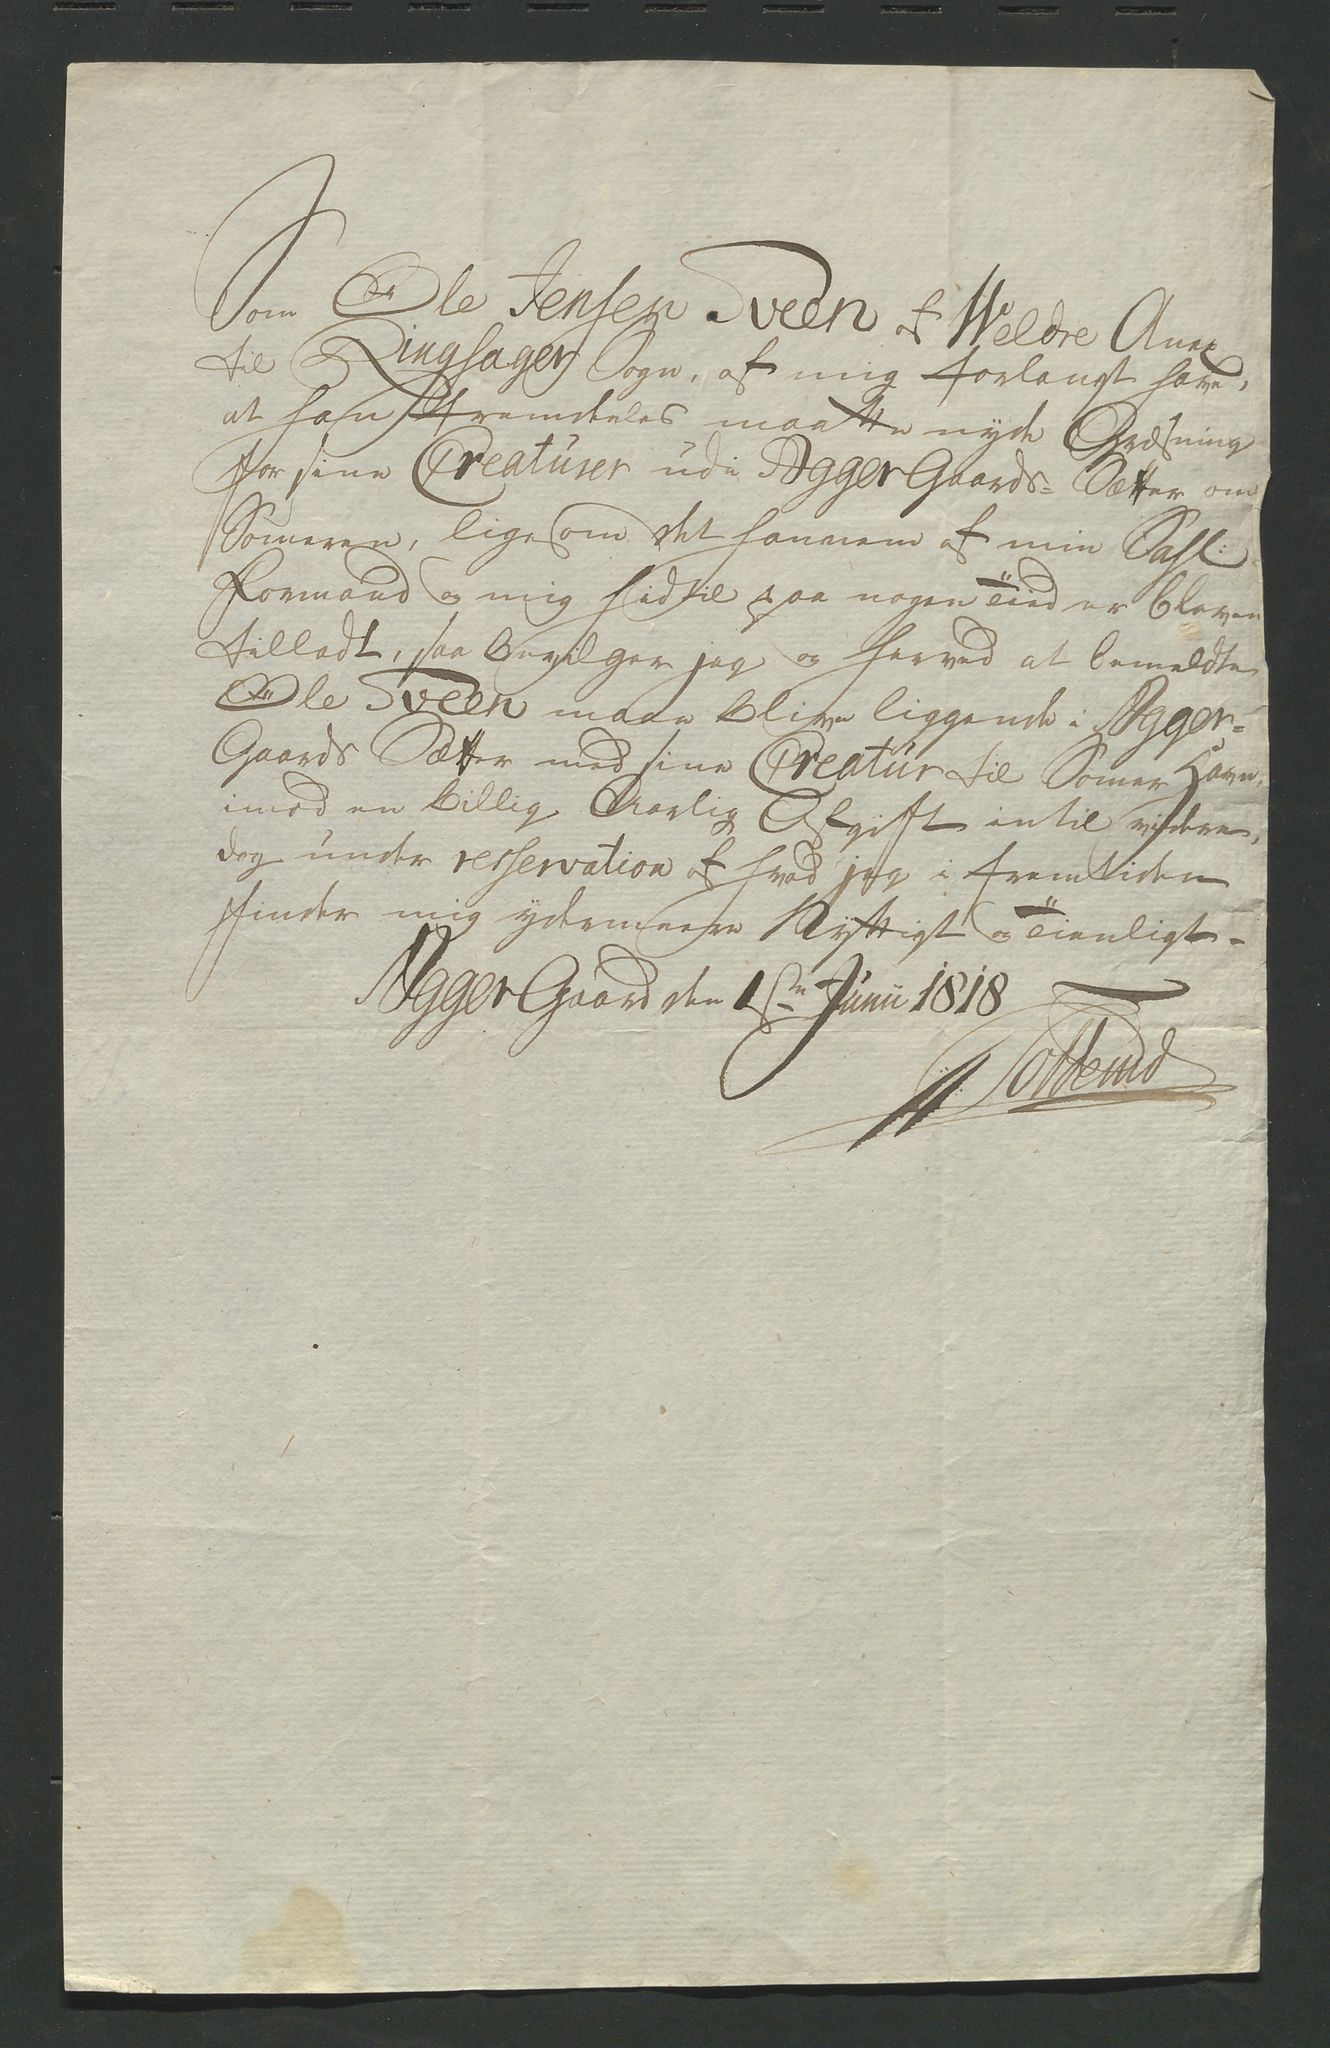 Som Ole Jensen Sveen af Weldre Anex
til Ringsager Sogn, af mig forlangt have,
at han fremdeles maatte nyde Græsning
for sine Creatuser udi AggerGaards= Sætter om
Someren, ligesom det hannem af min Sahl:
Formand og mig hidtil paa nogen Tiid er bleven
tilladt, saa bevilger jeg og herved at bemeldte
Ole Sveen maae blive liggende i Agger=
Gaards Sætter med sine Creatur til Somer Havn,
imod en billig Aarlig Afgift intil videre,
dog under resservation af hvad jeg i fremtiden
finder mig ydermeere Nyttigt og Tienligt.
AggerGaard den 1ste Junii 1818